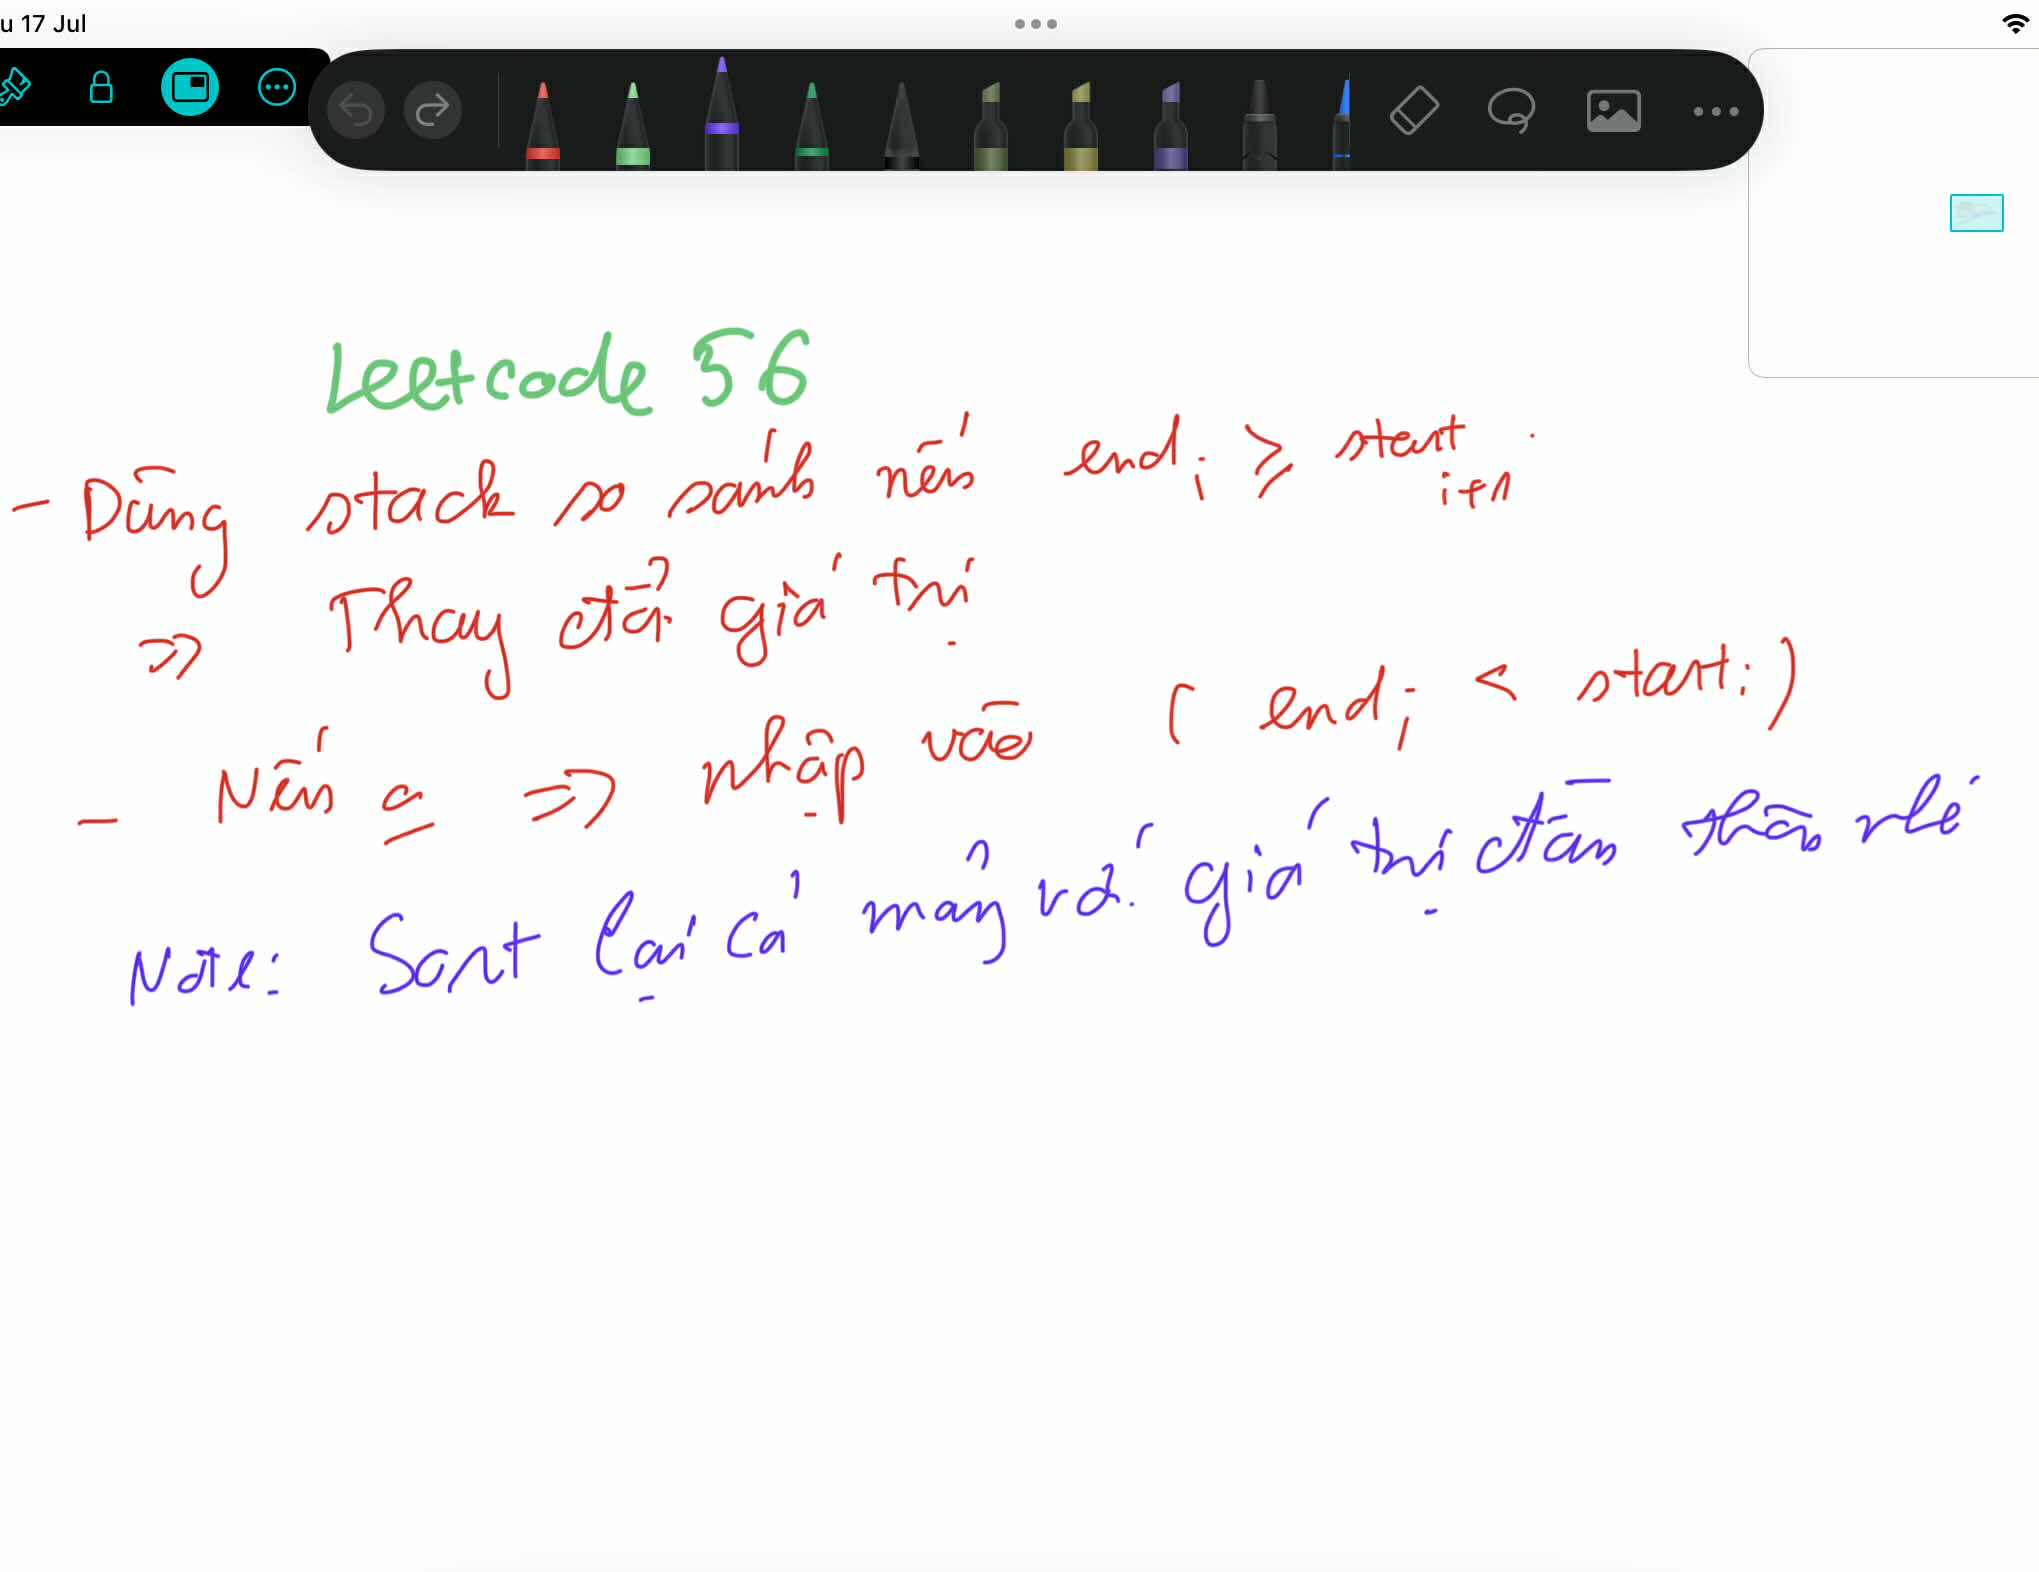 u 17 Jul
Leetcode 56
- Dùng stack so sánh nếu end i ≥ start i+1
⇒ Thay đổi giá trị
- Nếu ⇒ nhập vào ( end i < start i )
Note: Sort lại cả mảng với giá trị đầu nhé